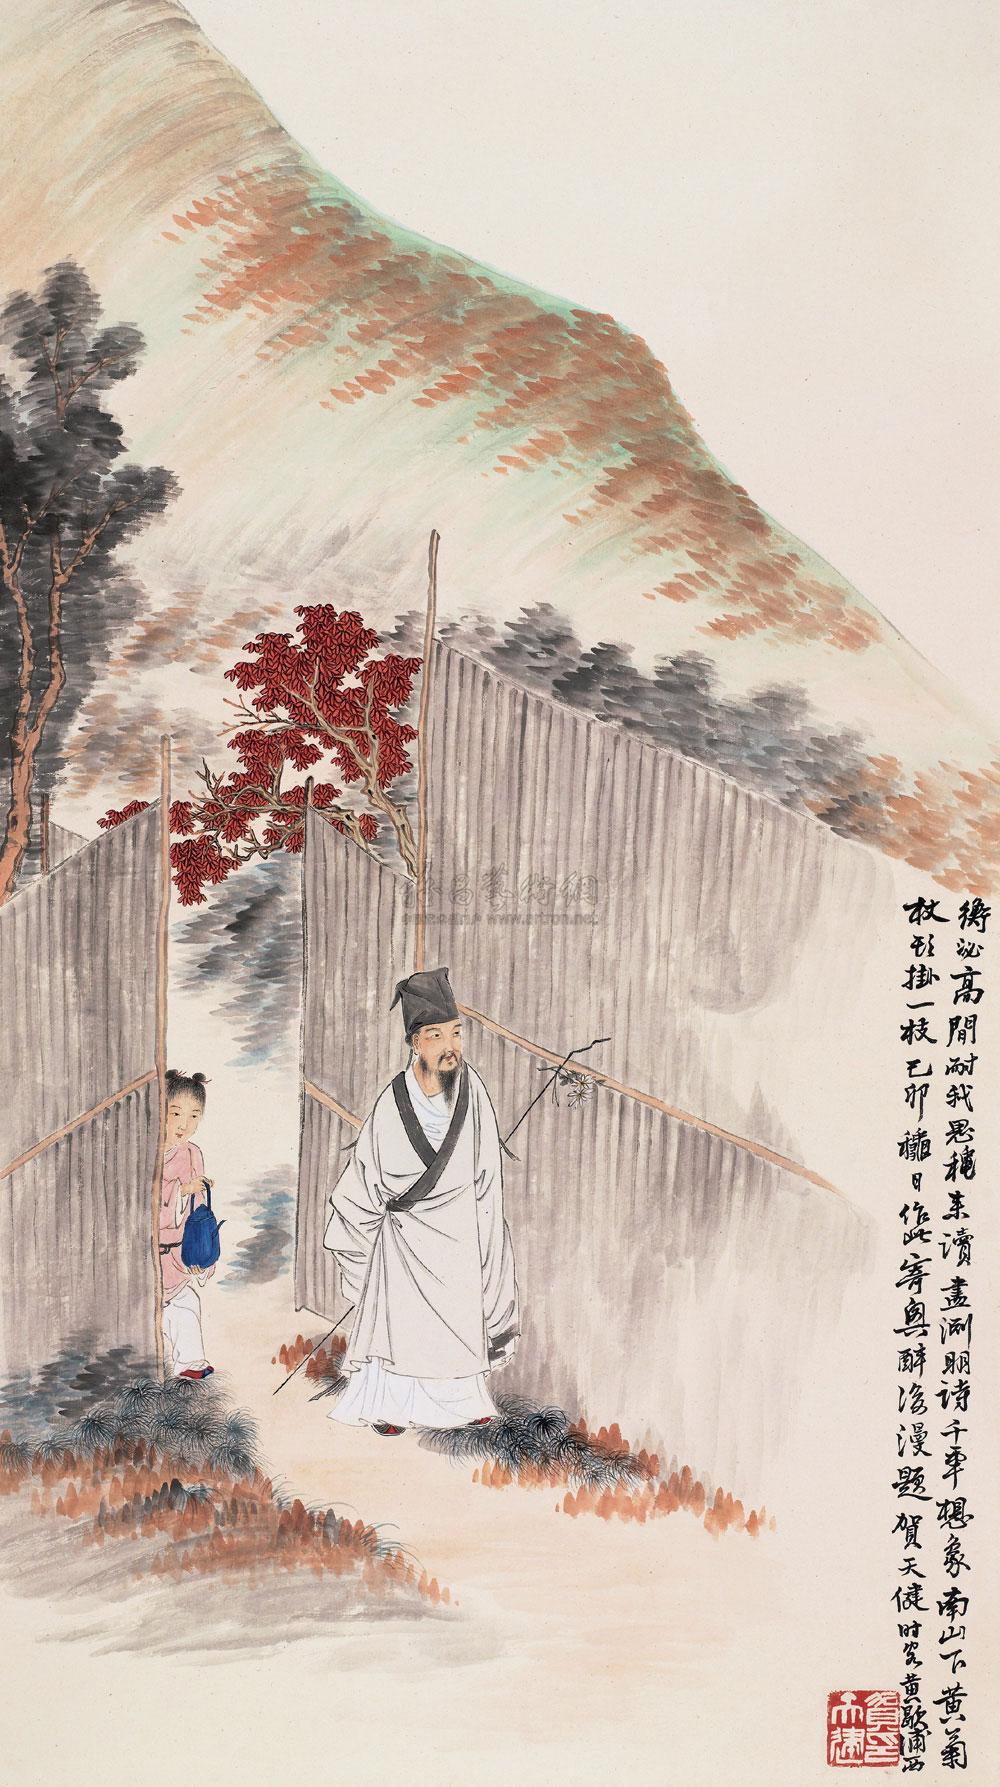 衡泌高閒耐我思穐来讀盡渊明詩千秊想象南山下黄菊
杖頭掛一枝己卯穐日作此寄興醉後漫題賀天健时客黄歇浦西
賀天健印
雅昌藝術網
www.artron.net